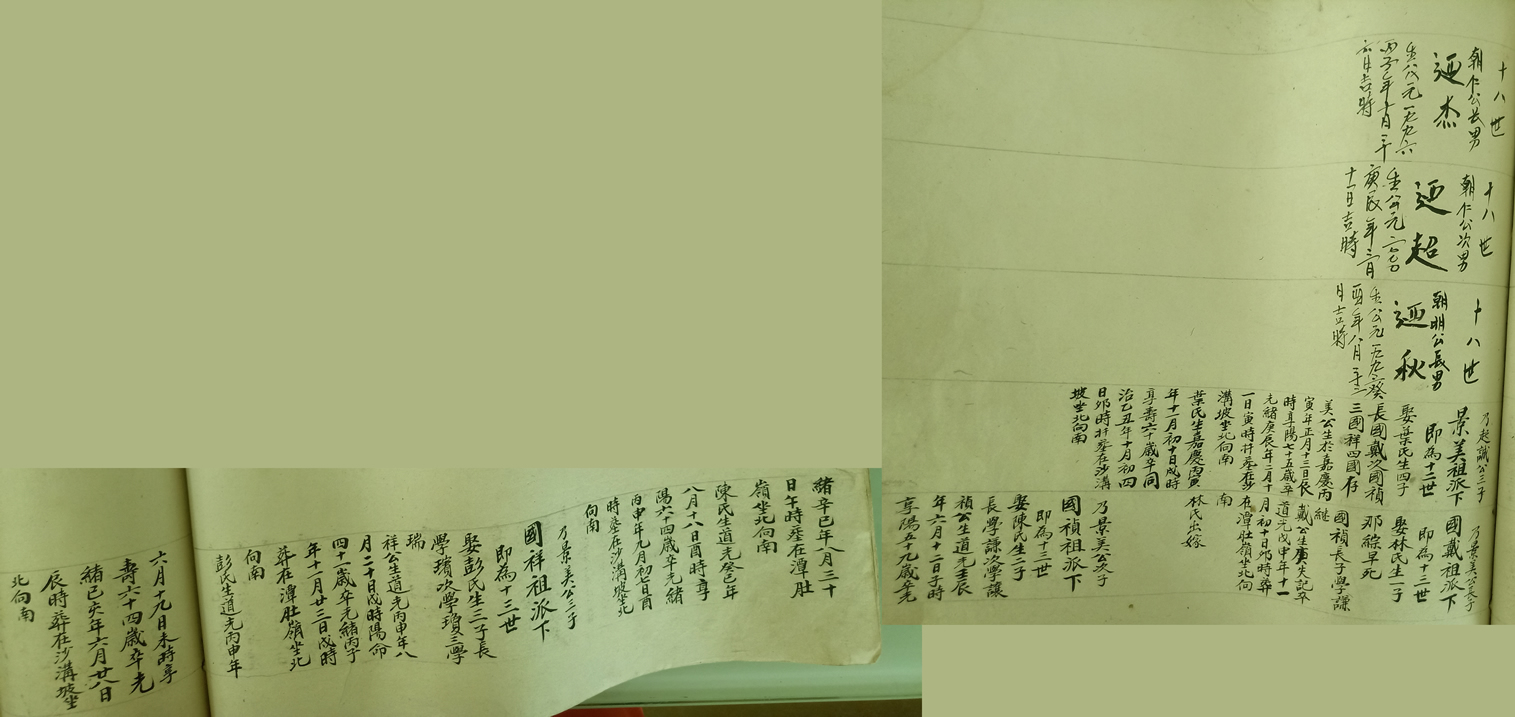 十八世
朝仁公長男
迊杰
生公元一九九六
丙子年十月二十
六日吉時
十八世
朝仁公次男
迊超
生公元二〇〇〇
庚辰年二月
十一日吉時
十八世
朝明公長男
迊秋
月吉時
乃起誠公三子
景美祖派下
即為十二世
娶葉氏生四子
長國戴次國禎
三國祥四國存
美公生於嘉慶丙
寅年正月十三日辰
時享陽七十五歲卒
光緒庚辰年二月十
一日寅時扦墓在沙
溝坡坐北向南
葉氏生嘉慶丙寅
年十一月初十日戌時
享壽六十歲卒同
治乙丑年十月初四
日卯時扦墓在沙溝
坡坐北向南
乃景美公長子
國戴祖派下
即為十三世
娶林氏生一子
那綜早死
繼國禎長子學謙
戴公生庚失記卒
道光戊申年十一
月初十日卯時葬
在潭肚嶺坐北向
南
林氏出嫁
乃景美公次子
國禎祖派下
即為十三世
娶陳氏生二子
長學謙次學讓
禎公生道光壬辰
年六月十二日子時
享陽五十九歲卒光
緒辛巳年八月三十
日午時墓在潭肚
嶺坐北向南
陳氏生道光癸巳年
八月十八日酉時享
陽六十四歲卒光緒
丙申年九月初七日酉
時墓在沙溝坡坐北
向南
乃景美公三子
國祥祖派下
即為十三世
娶彭氏生三子長
學瓊次學瓊三學
瑞
祥公生道光丙申年八
月二十日戌時陽命
四十一歲卒光緒丙子
年十一月廿三日戌時
葬在潭肚嶺坐北
向南
彭氏生道光丙申年
六月十九日未時享
壽六十四歲卒光
緒己亥年六月廿八日
辰時葬在沙溝坡坐
北向南